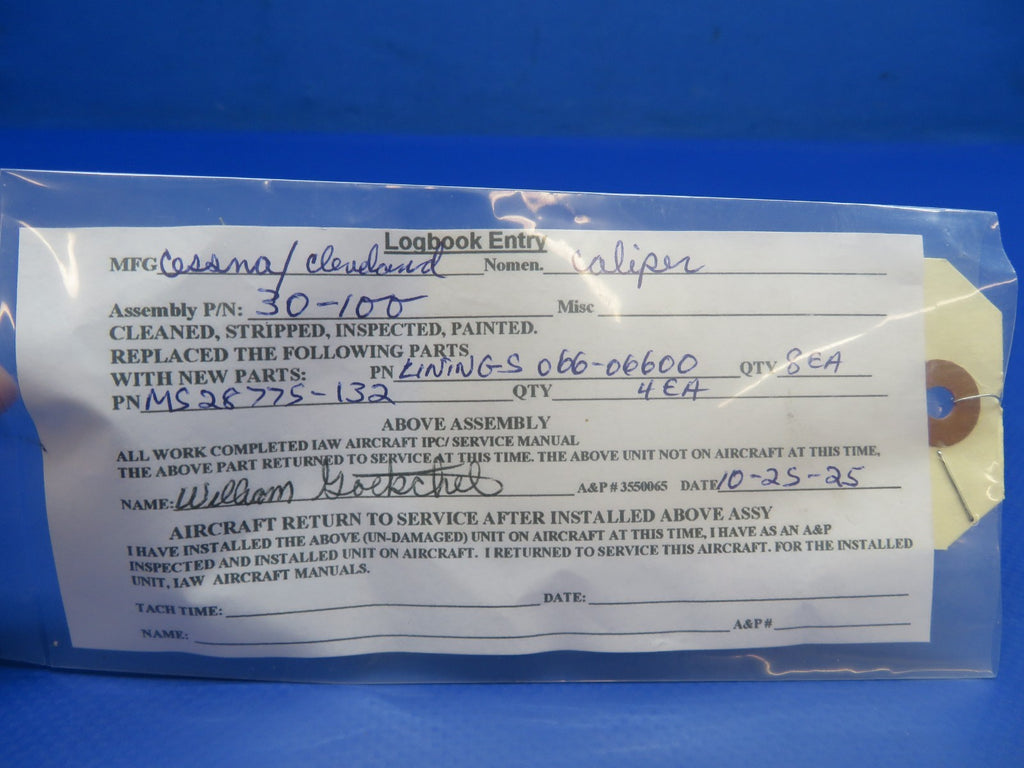 Logbook Entry
MFG Cessna/Cleveland Nomen. Caliper
Assembly P/N: 30-100 Misc
CLEANED, STRIPPED, INSPECTED, PAINTED.
REPLACED THE FOLLOWING PARTS
WITH NEW PARTS: PN LININGS 066-06600 QTY 8 EA
PN MS28775-132 QTY 4 EA
ABOVE ASSEMBLY
ALL WORK COMPLETED IAW AIRCRAFT IPC/ SERVICE MANUAL
THE ABOVE PART RETURNED TO SERVICE AT THIS TIME. THE ABOVE UNIT NOT ON AIRCRAFT AT THIS TIME,
NAME: William Goekchel A&P # 3550065 DATE 10-25-25
AIRCRAFT RETURN TO SERVICE AFTER INSTALLED ABOVE ASSY
I HAVE INSTALLED THE ABOVE (UN-DAMAGED) UNIT ON AIRCRAFT AT THIS TIME, I HAVE AS AN A&P
INSPECTED AND INSTALLED UNIT ON AIRCRAFT. I RETURNED TO SERVICE THIS AIRCRAFT. FOR THE INSTALLED
UNIT, IAW AIRCRAFT MANUALS.
TACH TIME: DATE:
NAME: A&P #